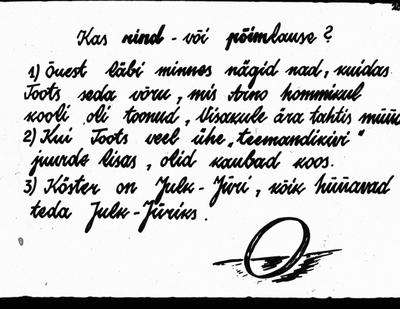 Kas rind- või põimlause?
1) Õuest läbi minnes nägid nad, kuidas
Toots seda võru, mis Arno hommikul
kooli oli toonud, Visakule ära tahtis müüa
2) Kui Toots veel ühe „teemandikivi"
juurde lisas, olid kaubad koos.
3) Köster on Julk-Jüri, kõik hüüavad
teda Julk-Jüriks.